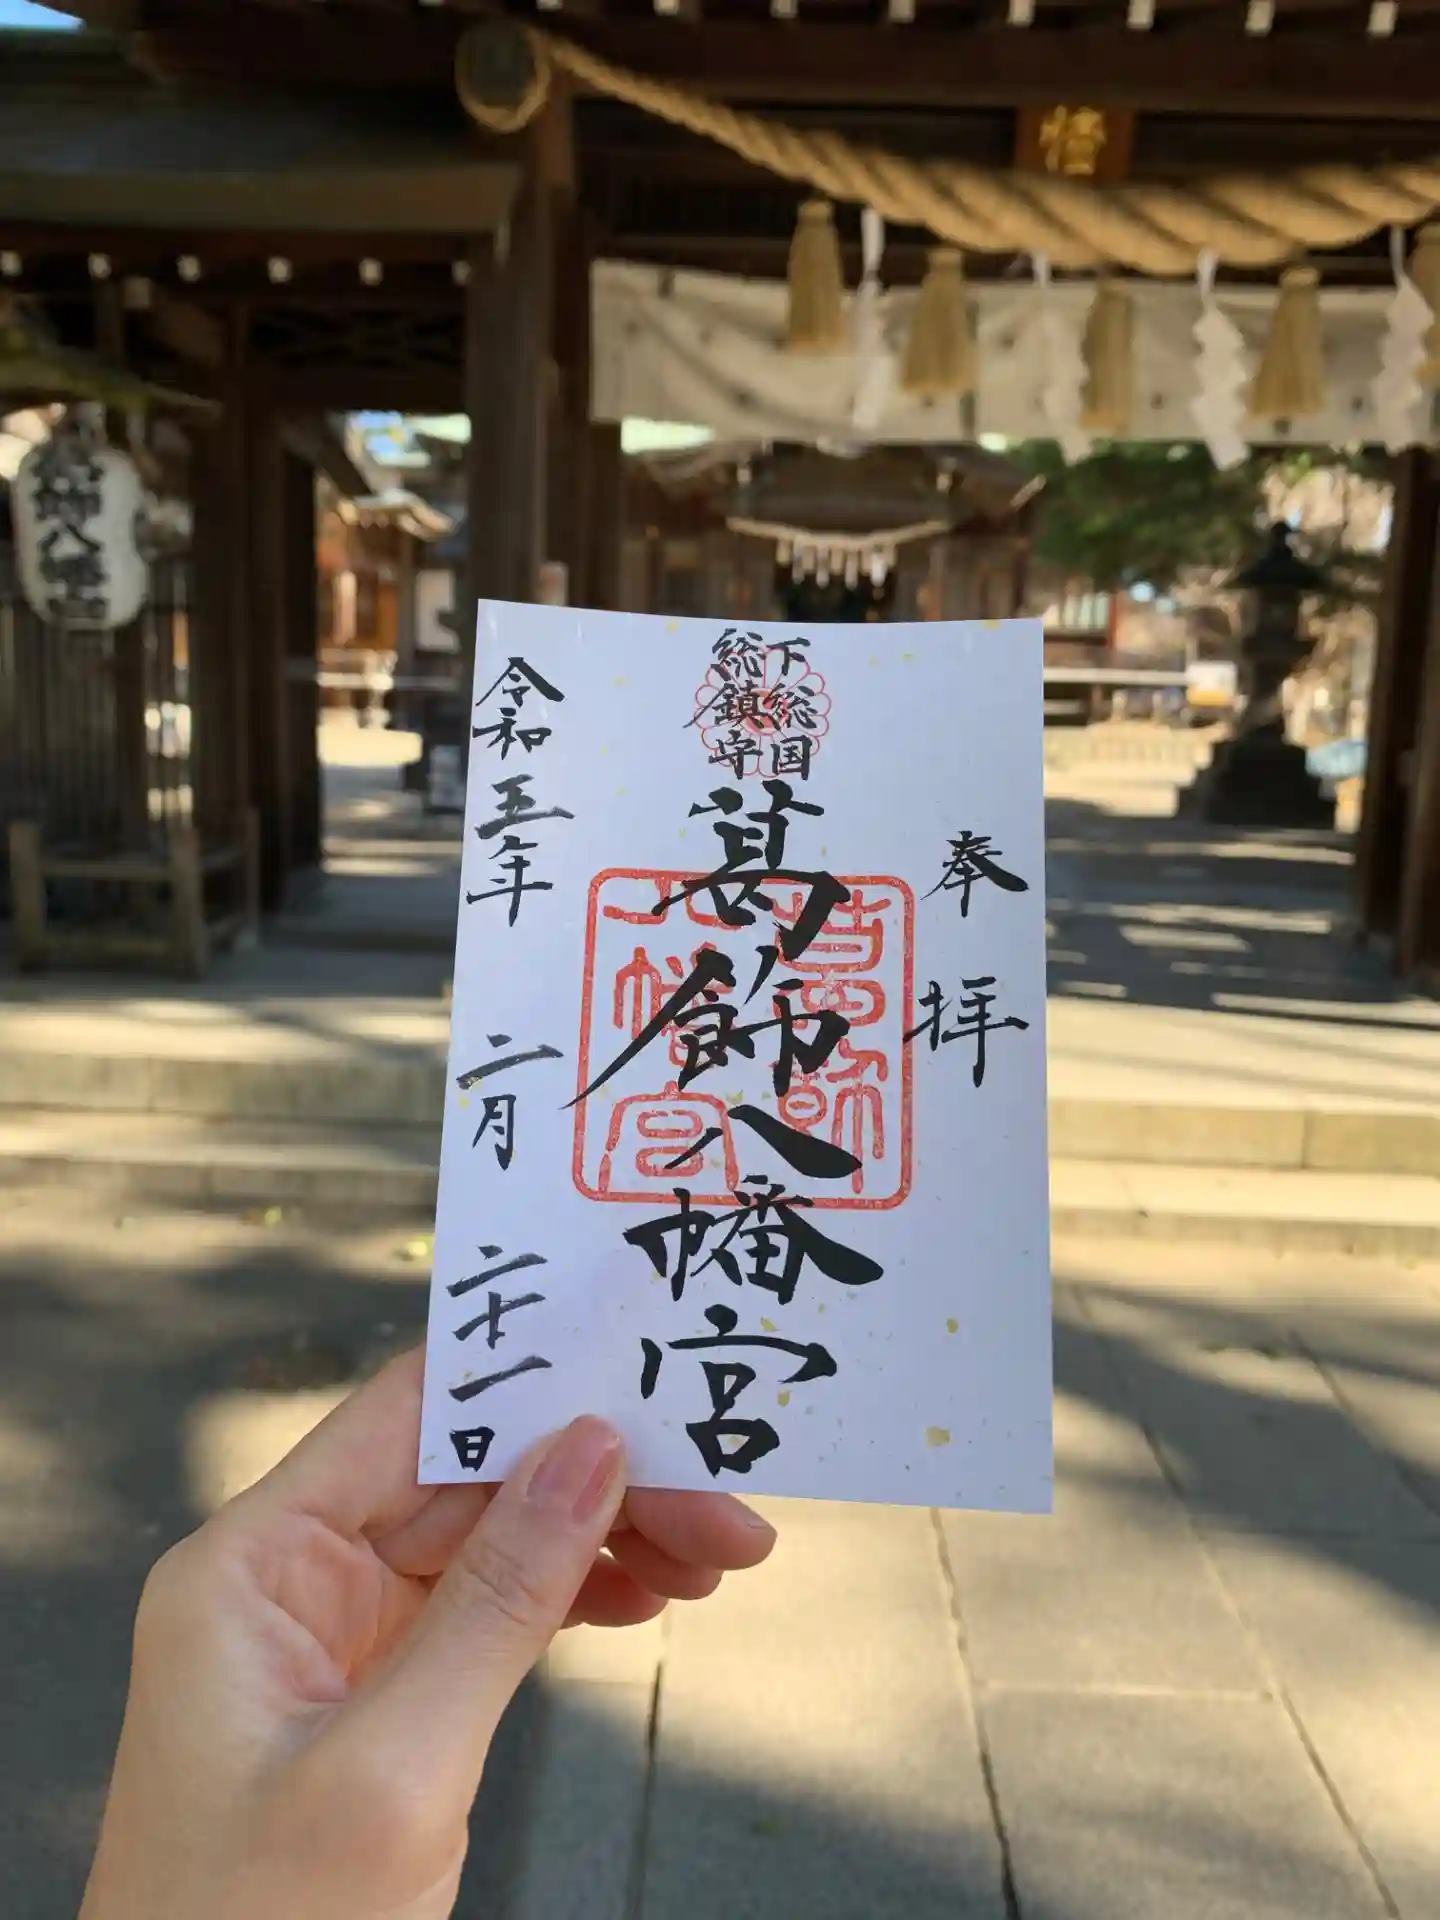 奉拝
下総国
総鎮守
葛飾八幡宮
令和五年 二月 二十一日
葛飾
八幡宮
葛飾八幡宮
幡